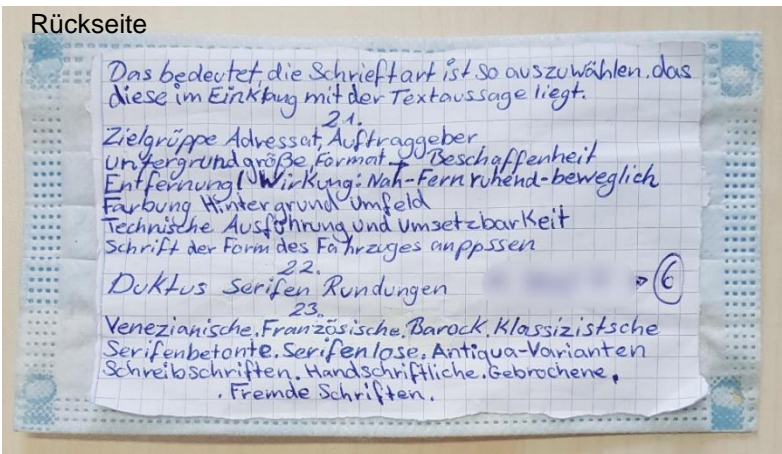 Rückseite
Das bedeutet die Schrieftart ist so auszuwählen.das
diese im Einklang mit der Textaussage liegt.
21.
Zielgrüppe Adressat, Auftraggeber
untergrundgröße, Format → Beschaffenheit
Entfernung! Wirkung: Nah-Fern ruhend-beweglich
Färbung Hintergrund Umfeld
Technische Ausführung und Umsetzbarkeit
Schrift der Form des Fahrzuges anppssen
22.
Duktus Serifen Rundungen
6
23.
Venezianische, Französische. Barock. Klassizistsche
Serifenbetonte. Serifenlose. Antiqua-Varianten
Schreibschriften. Handschriftliche. Gebrochene.
. Fremde Schriften.